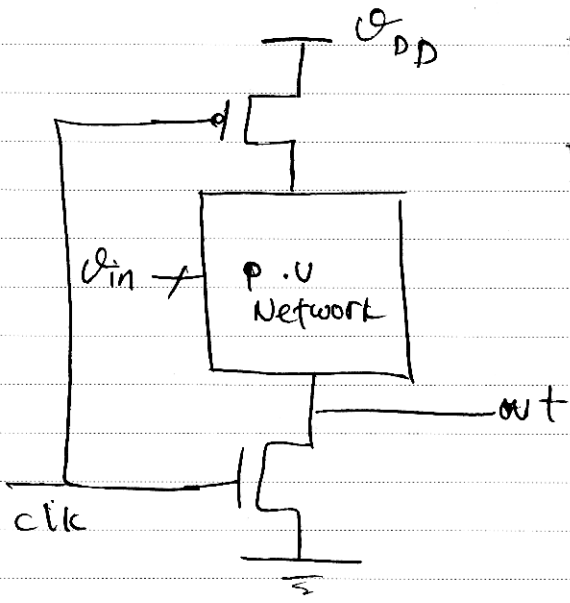 V_DD
Vin
P.U
Network
out
clk